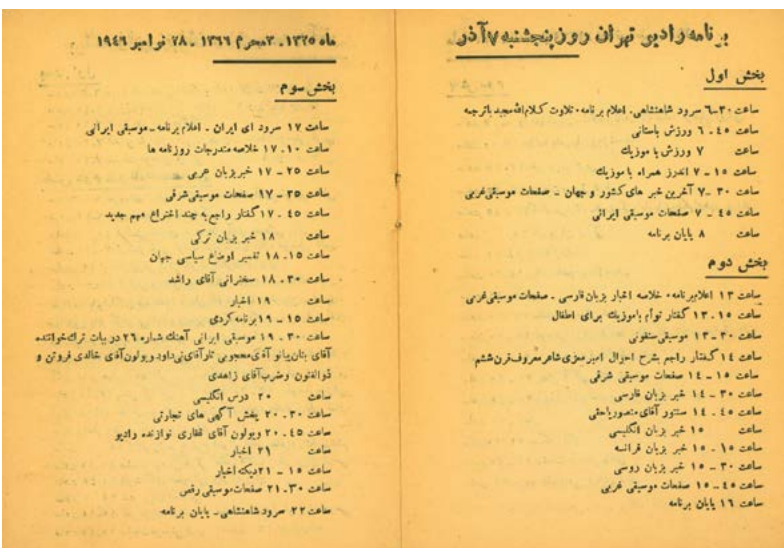 برنامه رادیو تهران روز پنجشنبه ۷ آذر
بخش اول
ساعت ۳۰-۶ سرود شاهنشاهی. اعلام برنامه. تلاوت کلام‌الله مجید باترجمه
ساعت ۴۵ . ۶ ورزش باستانی
ساعت ۷ ورزش با موزیک
ساعت ۱۵ - ۷ اندرز همراه با موزیک
ساعت ۳۰ -۷ آخرین خبر های کشور و جهان - صفحات موسیقی غربی
ساعت ۴۵ - ۷ صفحات موسیقی ایرانی
ساعت ۸ پایان برنامه
بخش دوم
ساعت ۱۳ اعلام برنامه. خلاصه اخبار بزبان فارسی . صفحات موسیقی غربی
ساعت ۱۵ . ۱۳ گفتار توأم باموزیک برای اطفال
ساعت ۳۰ - ۱۳ موسیقی سنفونی
ساعت ۱۴ گفتار راجع بشرح احوال امیر معزی شاعر معروف قرن ششم
ساعت ۱۵ - ۱۴ صفحات موسیقی شرقی
ساعت ۳۰ - ۱۴ خبر بزبان فارسی
ساعت ۴۵ . ۱۴ سنتور آقای منصور یاحقی
ساعت ۱۵ خبر بزبان انگلیسی
ساعت ۱۵ . ۱۵ خبر بزبان فرانسه
ساعت ۳۰ - ۱۵ خبر بزبان روسی
ساعت ۴۵ - ۱۵ صفحات موسیقی غربی
ساعت ۱۶ پایان برنامه
ماه ۱۳۲۵. ۳محرم ۱۳۶۶ . ۲۸ نوامبر ۱۹٤٦
بخش سوم
ساعت ۱۷ سرود ای ایران . اعلام برنامه - موسیقی ایرانی
ساعت ۱۰. ۱۷ خلاصه مندرجات روزنامه ها
ساعت ۲۵ - ۱۷ خبر بزبان عربی
ساعت ۳۵ - ۱۷ صفحات موسیقی شرقی
ساعت ۴۵ . ۱۷ گفتار راجع به چند اختراع مهم جدید
ساعت ۱۸ خبر بزبان ترکی
ساعت ۱۵. ۱۸ تفسیر اوضاع سیاسی جهان
ساعت ۳۰. ۱۸ سخنرانی آقای راشد
ساعت ۱۹ اخبار
ساعت ۱۵ - ۱۹ برنامه کردی
ساعت ۳۰ . ۱۹ موسیقی ایرانی آهنگ شماره ۲۶ در بیات ترک خواننده
آقای بنان پیانو آقای محجوبی تار آقای نی‌داود ویولون آقای خالدی فروتن و
ذوالفنون وضرب آقای زاهدی
ساعت ۲۰ درس انگلیسی
ساعت ۳۰. ۲۰ پخش آگهی های تجارتی
ساعت ۴۵. ۲۰ ویولون آقای غفاری نوازنده رادیو
ساعت ۲۱ اخبار
ساعت ۱۵ - ۲۱ دیکته اخبار
ساعت ۳۰. ۲۱ صفحات موسیقی رقص
ساعت ۲۲ سرود شاهنشاهی - پایان برنامه